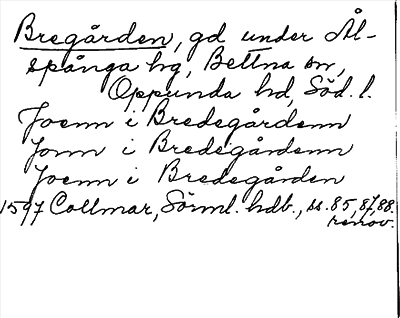 Bregården, gd under Ål-
spånga hg, Bettna sn,
Oppunda hd, Söd. l.
Joenn i Bredegårdenn
Jonn i Bredegårdenn
Joenn i Bredegården
1597 Collmar, Sörml. hdb., ss. 85, 87, 88.
renov.